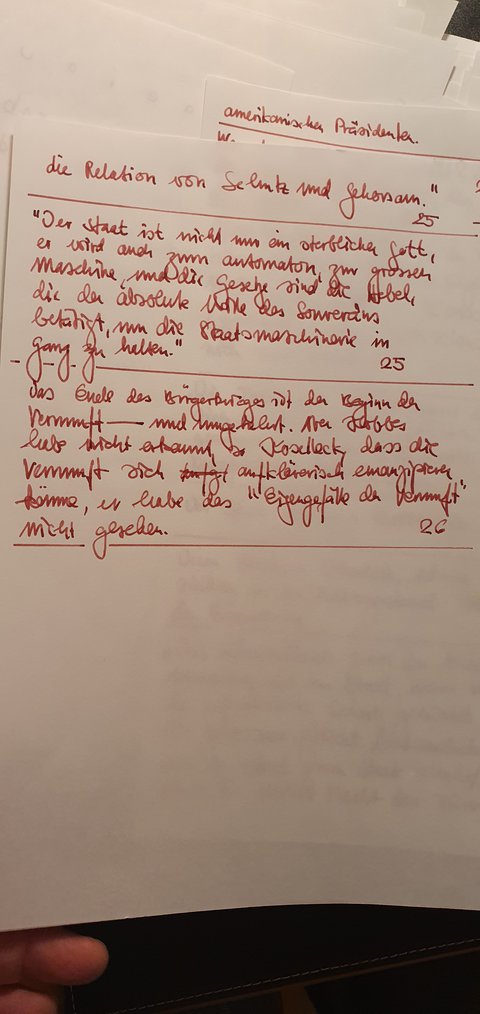 amerikanischer Präsidenten.
die Relation von Schutz und Gehorsam."
25
"Der Staat ist nicht nur ein sterblicher Gott,
er wird auch zum automaton, zur grossen
Maschine, und die Gesetze sind die Hebel,
die der absolute Wille des Souveräns
betätigt, um die Staatsmaschinerie in
Gang zu halten."
25
Das Ende des Bürgerkrieges ist der Beginn der
Vernunft — und umgekehrt. Nur Hobbes
habe nicht erkannt, so Koselleck, dass die
Vernunft sich aufklärerisch emanzipieren
könne, er habe das "Eigengefälle der Vernunft"
nicht gesehen.
26